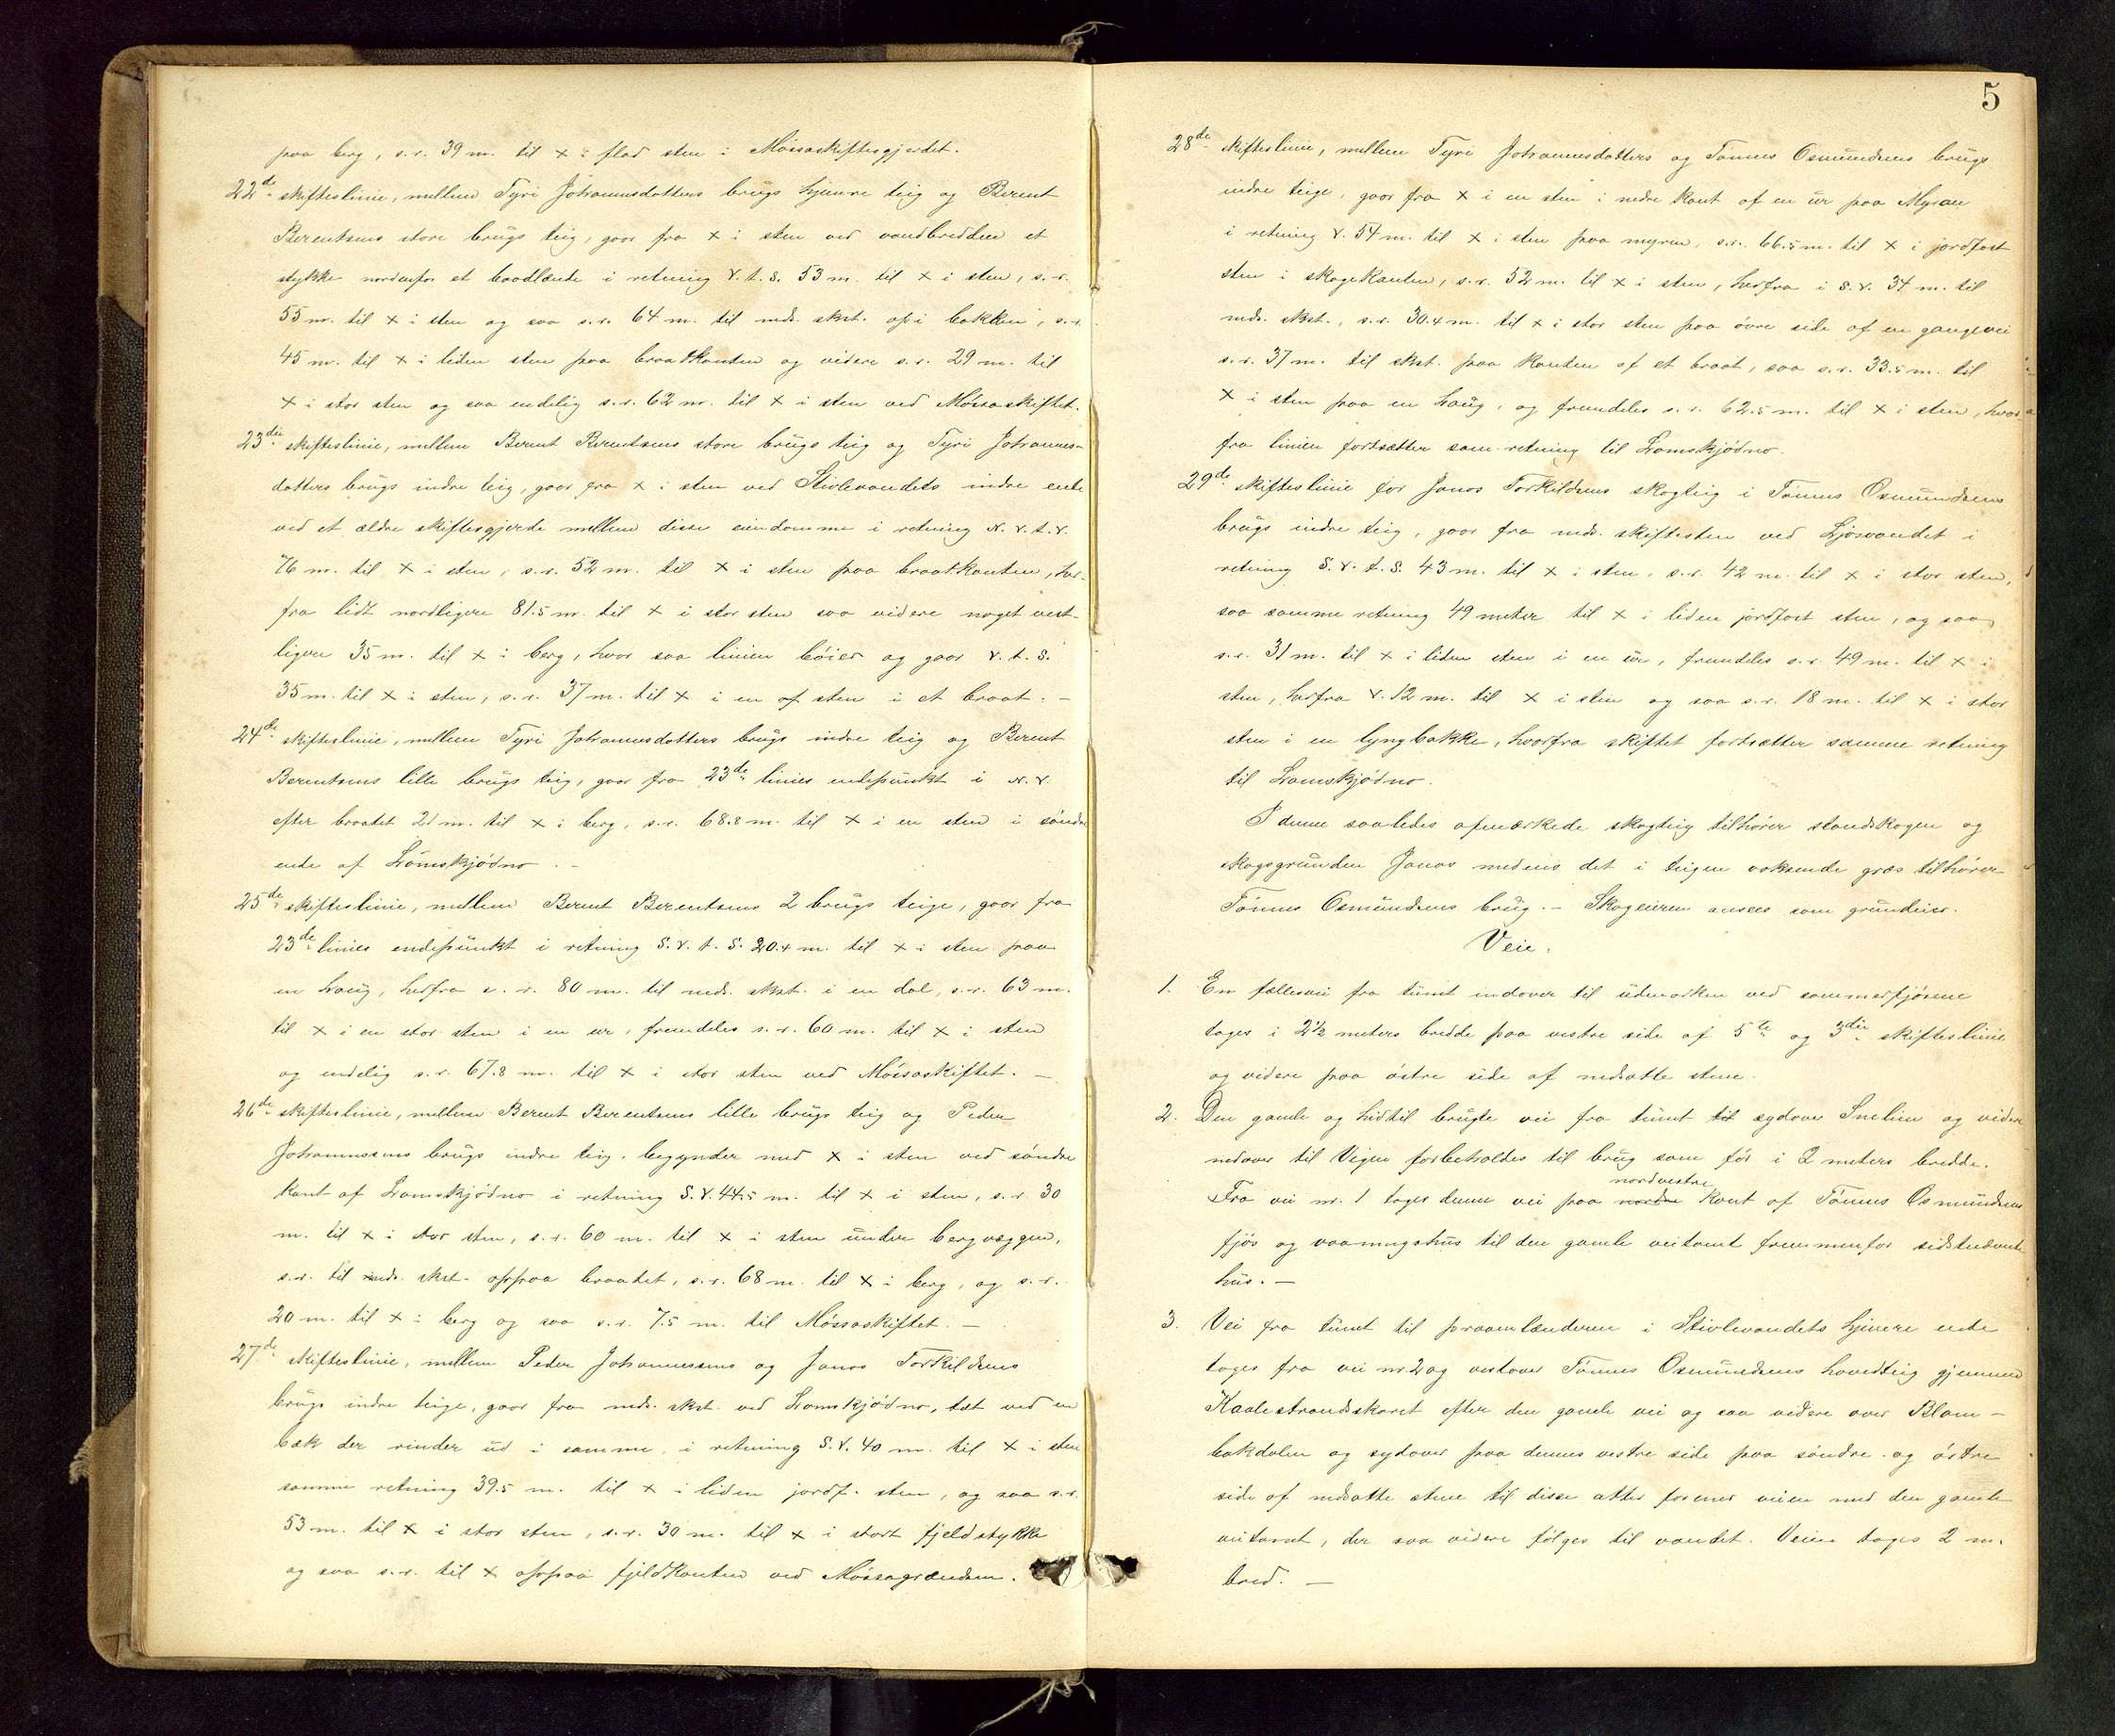 paa berg, s.r. 39 m. til × i flad sten i Mössaskiftesgjerdet.
22de skifteslinie, mellem Tyri Johannesdatters brugs hjemre teig og Berent
Berentsens store brugs teig, gaar fra × i sten ved vandbredden et
stykke nordenfor et baadlænde i retning V.t.S. 53 m. til × i sten, s.r.
55 m. til × i sten og saa s.r. 64 m. til neds. skst. op i bakken, s.r.
45 m. til × i liden sten paa braatkanten og videre s.r. 29 m. til
× i stor sten og saa endelig s.r. 62 m. til × i sten ved Mössaskiftet.
23die skifteslinie, mellem Berent Berentsens store brugs teig og Tyri Johannes-
datters brugs indre teig, gaar fra × i sten ved Stivlevandets indre ende
ved et ældre skiftesgjerde mellem disse eiendomme i retning N.V.t.V.
76 m. til × i sten, s.r. 52 m. til × i sten paa braatkanten, her-
fra lidt nordligere 81.5 m. til × i stor sten saa videre noget vest-
ligere 35 m. til × i berg, hvor saa linien böier og gaar V.t.S.
35 m. til × i sten, s.r. 37 m. til × i en af sten i et braat. —
24de skifteslinie, mellem Tyri Johannesdatters brugs indre teig og Berent
Berentsens lille brugs teig, gaar fra 23de linies endepunkt i N.V.
efter braatet 21 m. til × i berg, s.r. 68.8 m. til × i en sten i söndre
ende af Lomskjödno. —
25de skifteslinie, mellem Berent Berentsens 2 brugs teige, gaar fra
23de linies endepunkt i retning S.V.t.S. 20.4 m. til × i sten paa
en haug, herfra s.r. 80 m. til neds. skst. i en dal, s.r. 63 m.
til × i en stor sten i en ur, fremdeles s.r. 60 m. til × i sten
og endelig s.r. 67.8 m. til × i stor sten ved Mössaskiftet. —
26de skifteslinie, mellem Berent Berentsens lille brugs teig og Peder
Johannessens brugs indre teig, begynder med × i sten ved söndre
kant af Lomskjödno i retning S.V. 44.5 m. til × i sten, s.r. 30
m. til × i stor sten, s.r. 60 m. til × i sten under bergvæggen,
s.r. til neds. skst. oppaa braatet, s.r. 68 m. til × i berg, og s.r.
20 m. til × i berg og saa s.r. 7.5 m. til Mössaskiftet. —
27de skifteslinie, mellem Peder Johannessens og Jonas Torkildsens
brugs indre teige, gaar fra neds. skst. ved Lomskjödno, tæt ved en
bæk der rinder ud i samme, i retning S.V. 40 m. til × i sten
samme retning 39.5 m. til × i liden jordf. sten, og saa s.r.
53 m. til × i stor sten, s.r. 30 m. til × i stort fjeldstykke
og saa s.r. til × oppaa fjeldkanten ved Mössagrændsen.
5
28de skifteslinie, mellem Tyri Johannesdatters og Tönnes Osmundsens brugs
indre teige, gaar fra × i en sten i nedre kant af en ur paa Myran
i retning V. 54 m. til × i sten paa myren, s.r. 66.5 m. til × i jordfast
sten i skogekanten, s.r. 52 m. til × i sten, herfra i S.V. 34 m. til
neds. skst., s.r. 30.4 m. til × i stor sten paa övre side af en gangevei
s.r. 37 m. til skst. paa kanten af et braat, saa s.r. 33.5 m. til
× i sten paa en haug, og fremdeles s.r. 62.5 m. til × i sten, hvor-
fra linien fortsætter sam. retning til Lomskjödno.
29de skifteslinie for Jonas Torkildsens skogteig i Tönnes Osmundsens
brugs indre teig, gaar fra neds. skiftesten ved Ljösvandet i
retning S.V.t.S. 43 m. til × i sten, s.r. 42 m. til × i stor sten,
saa samme retning 49 meter til × i liden jordfast sten, og saa
s.r. 31 m. til × i liden sten i en ur, fremdeles s.r. 49 m. til × i
sten, herfra V. 12 m. til × i sten og saa s.r. 18 m. til × i stor
sten i en lyngbakke, hvorfra skiftet fortsætter samme retning
til Lomskjödno.
I denne saaledes afmærkede skogteig tilhörer standskogen og
skogsgrunden Jonas medens det i teigen voksende græs tilhörer
Tönnes Osmundsens brug. — Skogeieren ansees som grundeier.
Veie.
1. En fællesvei fra tunet indover til udmarken ved sommerfjösene
tages i 2½ meters bredde paa vestre side af 5te og 3die skifteslinie
og videre paa östre side af nedsatte stene.
2. Den gamle og hidtil brugte vei fra tunet til sydover Snelien og videre
nedover til Vigen forbeholdes til brug som för i 2 meters bredde.
nordvestre
Fra vei nr. 1 tages denne vei paa nordre kant af Tönnes Osmundsens
fjös og vaaningshus til den gamle veitomt fremmenfor sidstnævnte
hus. —
3. Vei fra tunet til praamlænderne i Stivlevandets hjemre ende
tages fra vei nr. 2 og vestover Tönnes Osmundsens hovedteig gjennem
Kaalestrandsskaret efter den gamle vei og saa videre over Blom-
bakdalen og sydover paa dennes vestre side paa söndre og östre
side af nedsatte stene til disse atter forener veien med den gamle
veitomt, der saa videre fölges til vandet. Veien tages 2 m.
bred. —